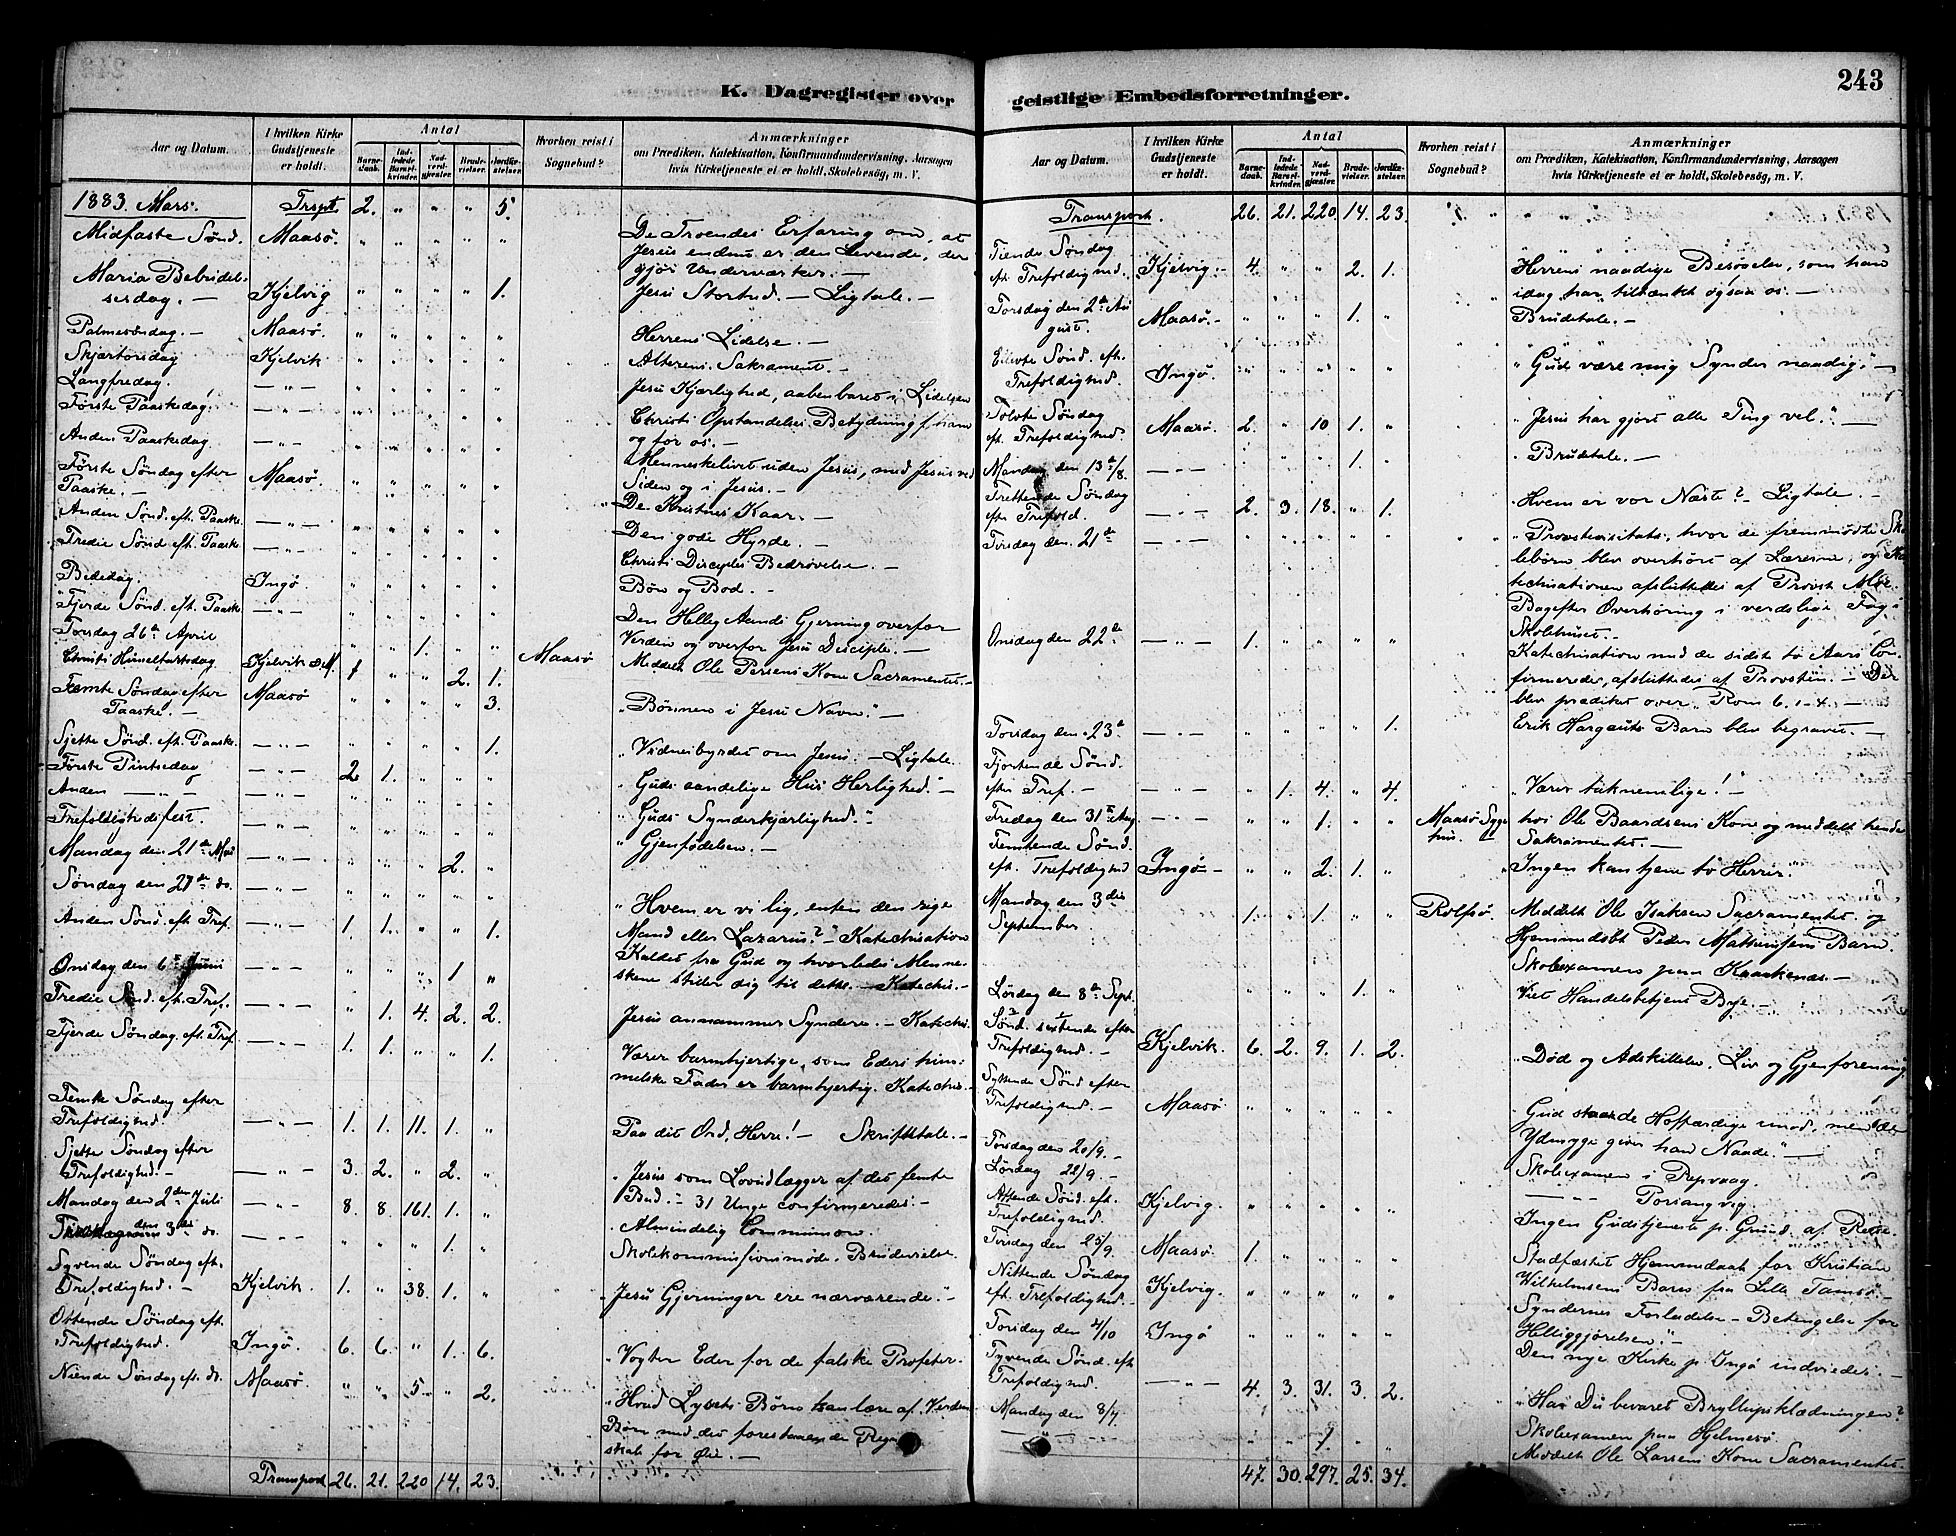 243
K. Dagregister over geistlige Embedsforretninger.
Aar og Datum.
I hvilken Kirke Gudstjeneste er holdt.
Antal
Barnedaab.
Indledede Barselkvinder.
Nadverdgjæster.
Brudevielser.
Jordfæstelser.
Hvorhen reist i Sognebud?
Anmærkninger
om Prædiken, Katekisation, Konfirmandundervisning, Aarsagen
hvis Kirketjeneste ei er holdt, Skolebesøg, m. V.
1883. Mars. Trspt. 2. " " " 5.
Midfaste Sønd. Maasø. " " " " " De Troendes Erfaring om, at
Jesus endnu er den Levende, der
gjør Underværker. —
Maria Bebudelsesdag. — Kjelvig " " " " 1. Jesu Storhed. — Ligtale. —
Palmesøndag. — Maasø. " " " " " Herrens Lidelse. —
Skjærtorsdag Kjelvik " " " " " Alterens Sakrament. —
Langfredag. — " — " " " " " Jesu Kjærlighed, aabenbaret i Lidelsen
Første Paaskedag. — " — " " " " " Christi Opstandelses Betydning f. ham
og for os. —
Anden Paaskedag — " — " " " " "
Første Søndag efter Paaske. — Maasø. " " " " " Menneskelivet uden Jesus, med Jesus ved
Siden og i Jesus. —
Anden Sønd. eft. Paaske. — " — " " " " " De Kristnes Kaar. —
Tredie Sønd eft. Paaske — " — " " " " " Den gode Hyrde. —
Christi Disciples Bedrøvelse. —
Bededag. Ingø. " " " " " Bøn og Bod. —
Fjerde Sønd. eft. Paaske. — " — " " " " " Den Hellig Aands Gjerning overfor
Verden og overfor Jesu Disciple. —
Torsdag 26de April " " 1. " " Maasø Meddelt Ole Persens Kone Sacramentet. —
Christi Himmelfartsdag Kjelvik 1 " " 2. 1.
Femte Søndag efter Paaske. — Maasø " " " " 3. "Bønnen i Jesu Navn." —
Sjette Sønd. eft. Paaske. — " — " " " " 1. "Vidnesbyrdet om Jesus. — Ligtale.
Første Pintsedag — " — 2. 1. " " " "Guds aandelige Hus' Herlighed." —
Anden — " — — " — " " " " " "Guds Synderkjærlighed."
Trefoldighedsfest. — " — " " " " " "Gjenfødelsen. —
Mandag den 21de Mai — " — " " " 2. "
Søndag den 27de do. — " — " " " " " "Hvem er vi lig, enten den rige
Mand eller Lazarus?" — Katechisation
Anden Sønd. eft. Tref. — " — 1. 1. " " 1. Kaldet fra Gud og hvorledes Menneskene
stiller sig til dette. — Katechis. —
Onsdag den 6te Juni — " — " " " 1 "
Tredie Sønd. eft. Tref. — " — " 1. 4. 2. 2. Jesus annammer Syndere. — Katechis.
Fjerde Søndag. eft. Tref. — " — 1. 1. " " 1. Værer barmhjertige, som Eders himmelske
Fader er barmhjertig. Katechis. —
Femte Søndag efter Trefoldighed. — " — 1. 1. 11. 1. " Paa dit Ord, Herre! — Skriftetale. —
Sjette Søndag efter Trefoldighed. — — " — 3. 2. " 2. " "Jesus som Lovudlægger af det femte
Bud." — 31 Unge confirmeredes. —
Mandag den 2den Juli — " — 8. 8. 161. 1. " Almindelig Communion.
Tirsdag den 3die do. — " — " " " 1. " Skolekommissionsmøde. Brudevielse.
Syvende Søndag eft. Trefoldighed. — Kjelvik. 1. " 38. 1. " "Jesu Gjerninger ere nærværende." —
Ottende Søndag eft. Trefoldighed. Ingø. 6. 6. " 1. 6. "Vogter Eder for de falske Profeter.
Niende Søndag eft. do. Maasø. " " 5. " 2. "Hvad Lysets Børn kan lære af Verdens
Børn med det forestaaende Regnskab
for Øie. —
Transport 26. 21. 220 14. 23.
Transport. 26. 21. 220. 14. 23. " " "
Tiende Søndag eft. Trefoldighed. Kjelvig. — 4. " " 2. 1. Herrens naadige Besøgelse, som han
idag har tiltænkt ogsaa os. —
Torsdag den 2de August. Maasø. — " " " 1. " Brudetale. —
Ellevte Sønd. eft. Trefoldighed. Ingø. " " " " " "Gud være mig Synder naadig." —
Tolvte Søndag eft. Trefoldighed. Maasø. 2. " 10 1. " "Jesus har gjort alle Ting vel." —
Mandag den 13de/8. — " — " " " 1. " Brudetale. —
Trettende Søndag eft. Trefold. — " — 2. 3. 18. " 1. Hvem er vor Næste? Ligtale. —
Tirsdag den 21de — " — " " " " " "Provstevisitats, hvor de fremmødte Skolebørn
blev overhørt af Læreren, og Katechisationen
afsluttedes af Provst Moe.
Bagefter Overhøring i verdslige Fag i
Skolehuset. —
Onsdag den 22de — " — 1. " " " " Katechisation med de sidste to Aars Confirmerede,
afsluttedes af Provsten. — Der
blev prædiket over Rom 6. 1-4. —
Torsdag den 23de — " — " " " " 1. Erik Hargauts Barn blev begravet. —
Fjortende Sønd. efter Tref. — — " — " 1. 4. " 4. "Værer taknemlige!" —
Fredag den 31te Aug — " — " " 1. " " Maasø Sygehus. hos Ole Baardsens Kone og meddelt hende
Sakramentet. —
Femtende Sønd. eft. Trefoldighed Ingø — " " 2. 1. " "Ingen kan tjene to Herrer."
Mandag den 3die September 1. " 1. " " Rolfsø. Meddelt Ole Isaksen Sacramentet og
Hjemmedøbt Peder Mathisens Barn.
Skolexamen paa
Lørdag den 8de Sept. " " " 1. " Viet Handelsbetjent Bye. —
Sønd. sextende efter Trefoldighed. — Kjelvik. 6. 2. 9. 1. 2. "Død og Adskillelse. Liv og Gjenforening
Syttende Sønd efter Trefoldighed. — Maasø " " " " " "Gud staar de Hoffærdige imod, men de
Ydmyge giver han Naade." —
Torsdag den 20/9. — Skolexamen i Repvaag.
Lørdag 22/9. — — " — Porsangvig.
Attende Sønd. eft. Trefoldighed. Kjelvig. " " " " " Ingen Gudstjeneste p. Grund af Reise.
Tirsdag den 25/9. Maasø. 1. " " " " Stadfæstet Hjemmedaab for Kristian
Wilhelmsens Barn fra Lille Tamsø. —
Nittende Søndag eft. Trefoldighed. — Kjelvig. " " " " " Syndernes Forladelse — Betingelse for
Helliggjørelsen." —
Torsdag den 4/10 Ingø " " " " " Den nye Kirke p. Ingø indviedes. —
Tyvende Sønd. eft Trefoldighed. — " — 4. 3. 31. 3. 2. "Har Du bevaret Bryllupsklædningen?
Mandag den 8/ Skolexamen paa Hjelmesø.
— " — " " 1 " " Meddelt Ole Larsens Kone Sacramentet.
47. 30. 297. 25. 34.